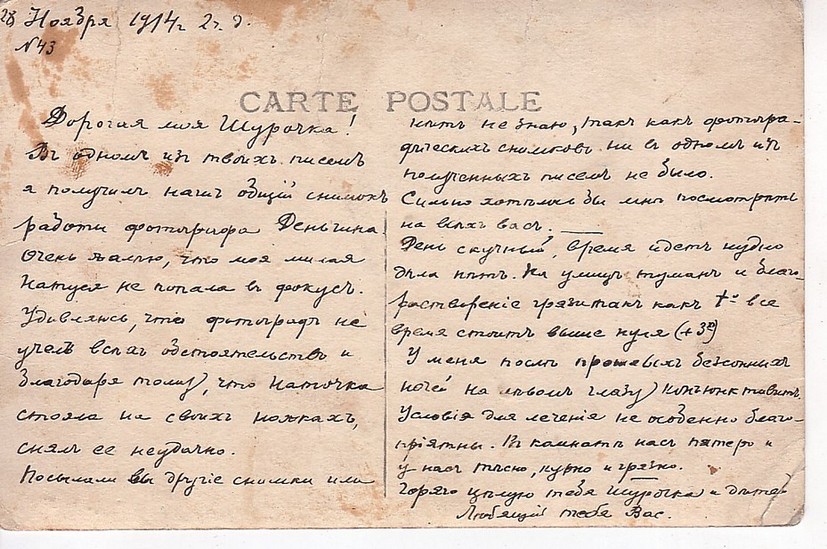 28 Ноября 1914г 2 ч. д.
№ 43
CARTE POSTALE
Дорогая моя Шурочка!
Въ одномъ изъ твоихъ писемъ
я получилъ нашъ общiй снимокъ
работы фотографа Деньгина
Очень жалѣю, что моя милая
Натуся не попала въ фокусъ.
Удивляюсь, что фотографъ не
учелъ всѣхъ обстоятельствъ и
благодаря тому, что Наточка
стояла на своихъ ножкахъ,
снялъ ее неудачно.
Посылали вы другiе снимки или
нѣтъ не знаю, такъ какъ фотогра-
фическихъ снимковъ ни въ одномъ изъ
полученныхъ писемъ не было.
Сильно хотѣлось бы мнѣ посмотрѣть
на всѣхъ васъ. —
День скучный, время идетъ нудно
дѣла нѣтъ. На улицѣ туманъ и благо-
растворенiе грязи такъ какъ tº все
время стоитъ выше нуля (+3º)
У меня послѣ прошевыхъ безсонныхъ
ночей на лѣвомъ глазу конъюнктивитъ.
Условiя для леченiя не особенно благо-
прiятны. Въ комнатѣ насъ пятеро и
у насъ тѣсно, курно и грязно.
Горячо цѣлую тебя Шурочка и дѣтей
Любящiй тебя Вас.